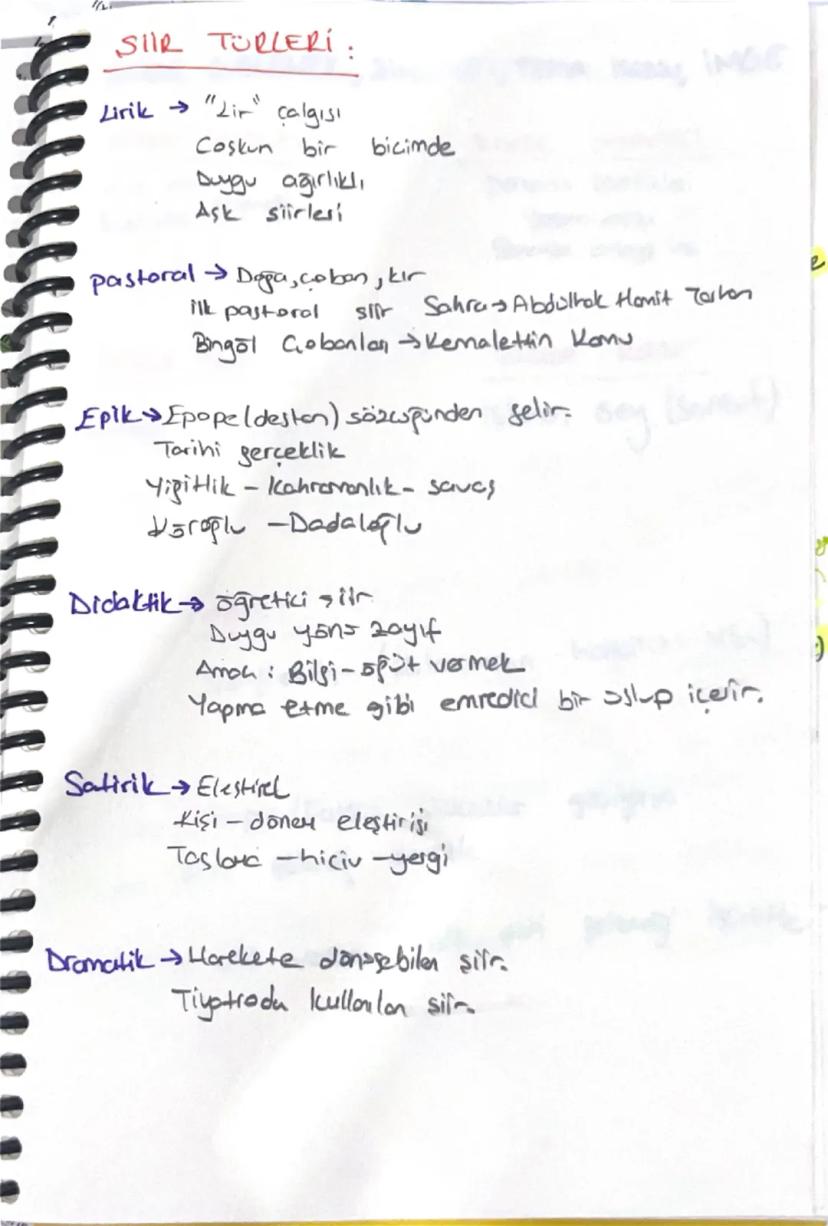 ŞİİR TÜRLERİ:
Lirik → "Lir" çalgısı
Coşkun bir biçimde
Duygu ağırlıklı
Aşk şiirleri
Pastoral → Doğa, çoban, kır
ilk pastoral şiir Sahra → Abdülhak Hamit Tarhan
Bingöl Çobanları → Kemalettin Kamu
Epik → Epope (destan) sözcüğünden gelir.
Tarihi gerçeklik
Yiğitlik - Kahramanlık - savaş
Köroğlu - Dadaloğlu
Didaktik → öğretici şiir
Duygu yönü zayıf
Amaç: Bilgi - öğüt vermek
Yapma etme gibi emredici bir üslup içerir.
Satirik → Eleştirel
Kişi - dönem eleştirisi
Taşlama - hiciv - yergi
Dramatik → Harekete dönüşebilen şiir.
Tiyatroda kullanılan şiir.